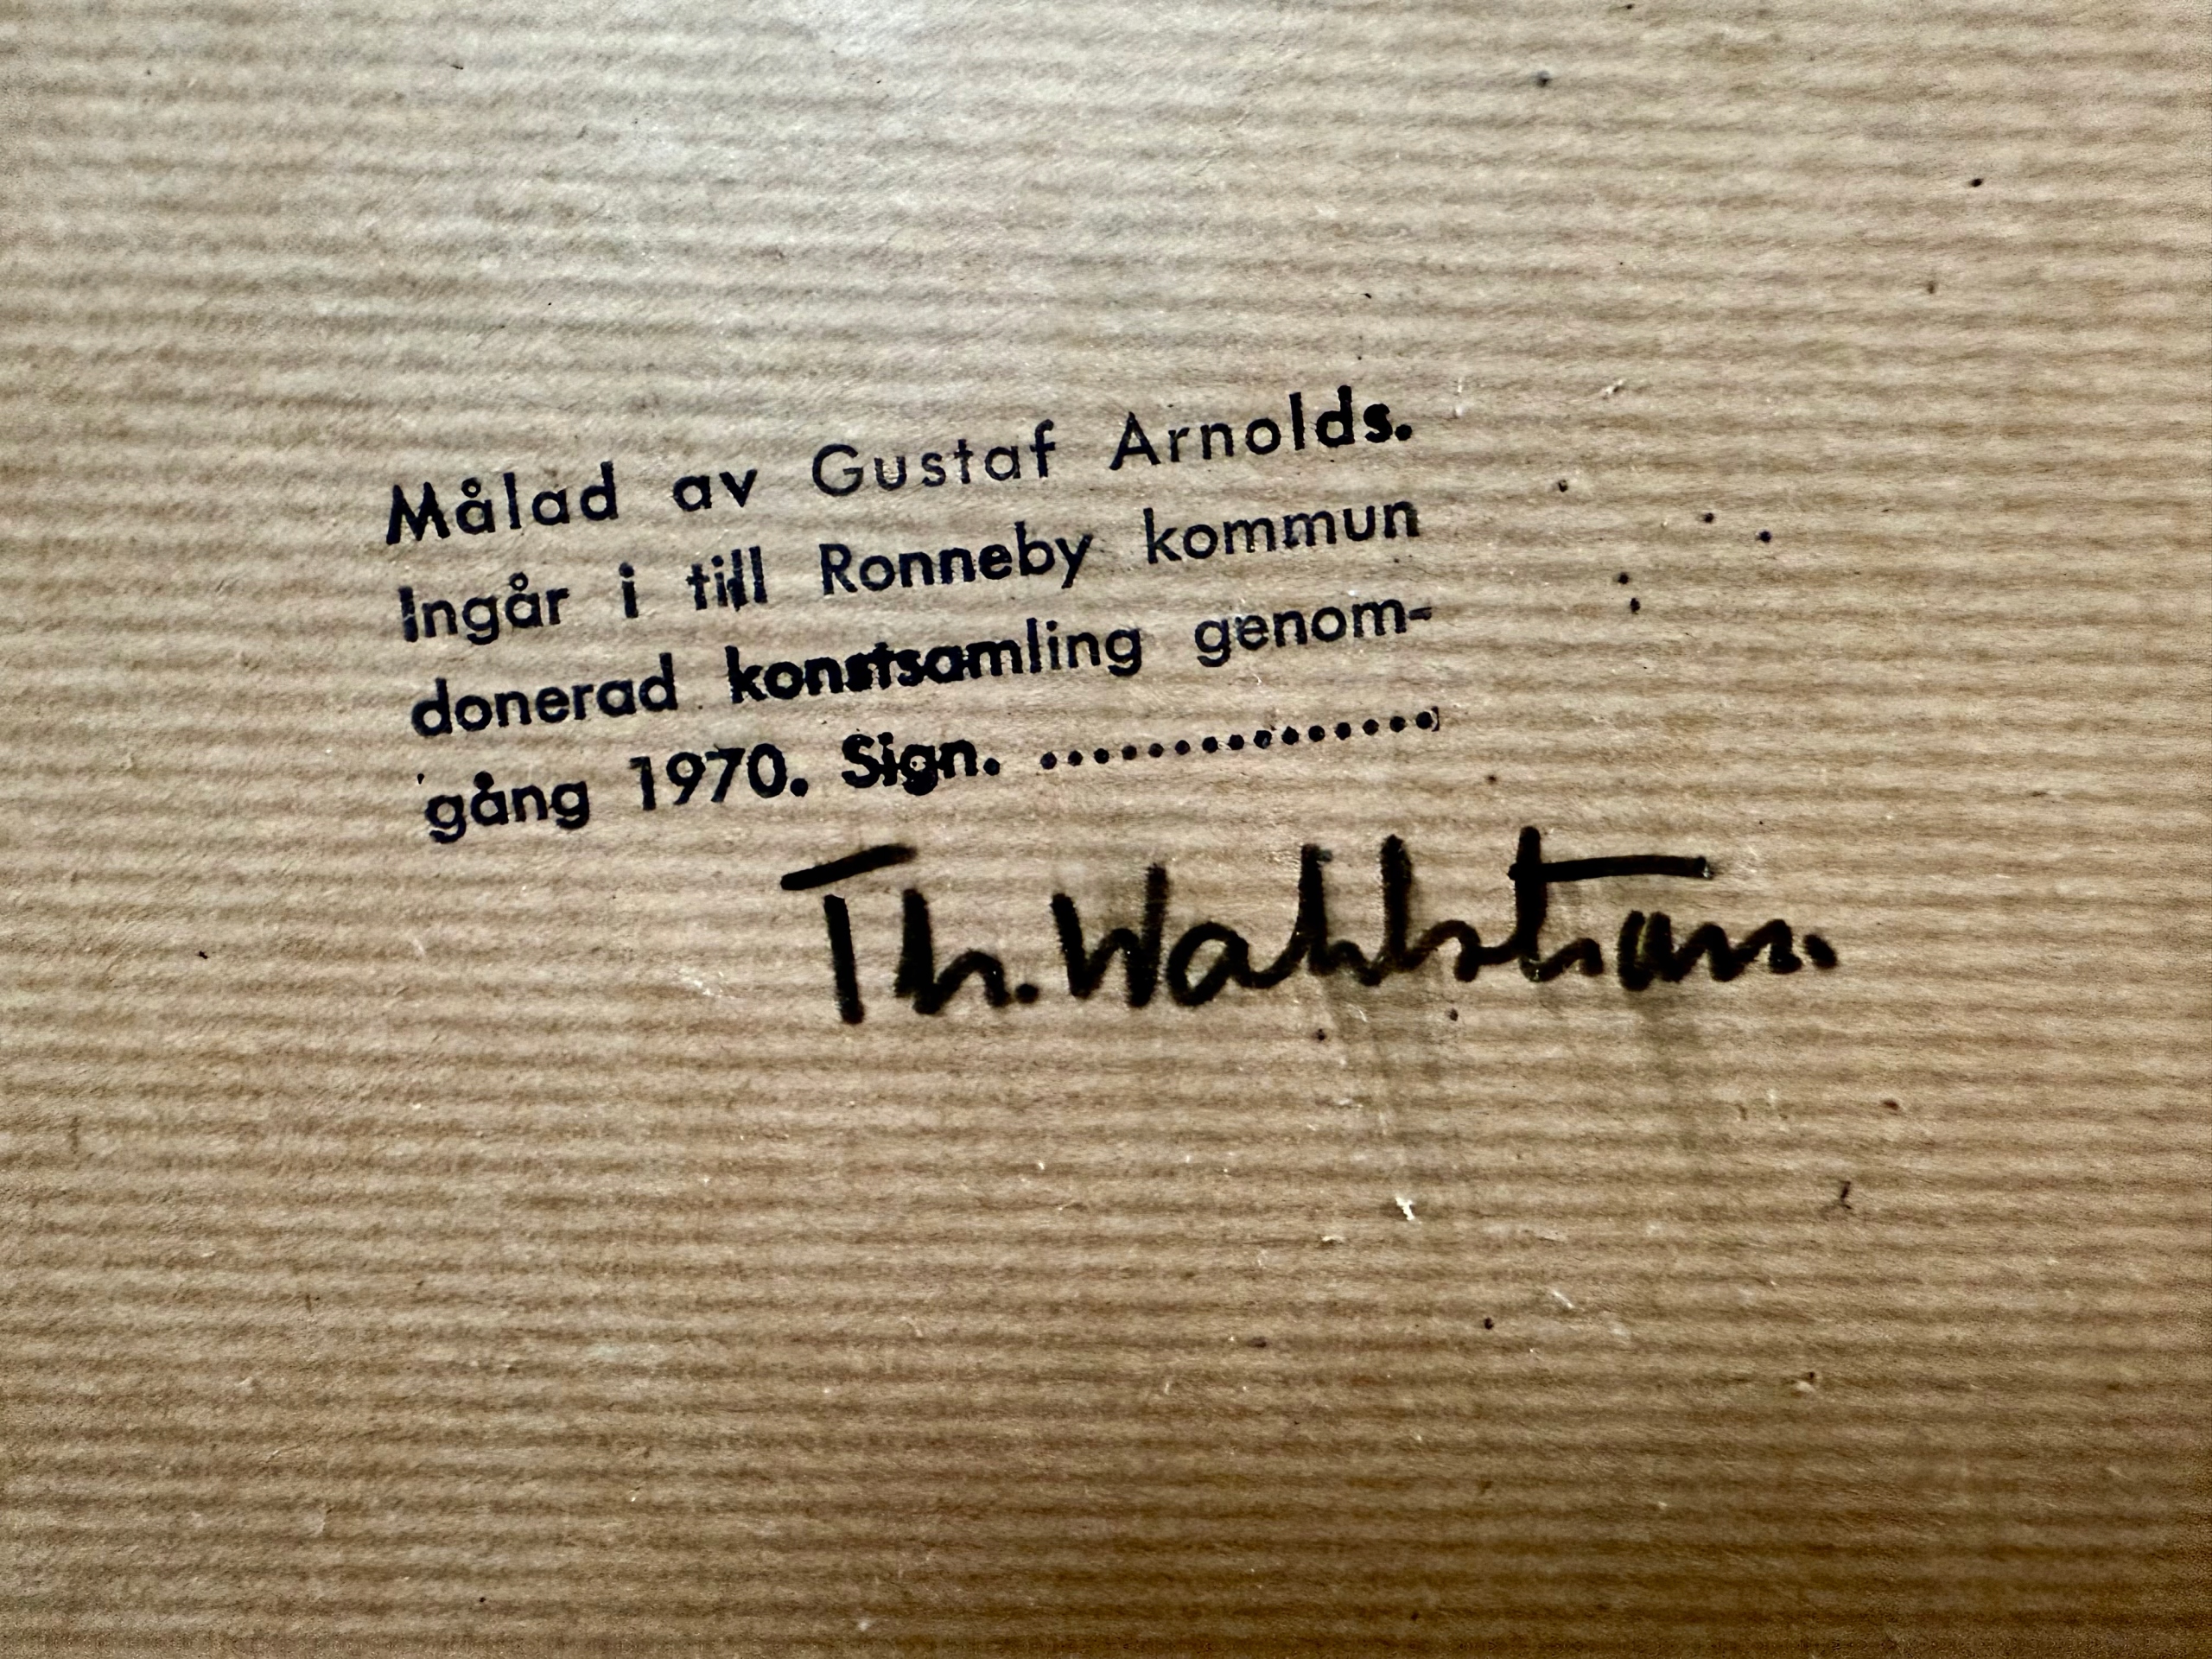 Målad av Gustaf Arnolds.
Ingår i till Ronneby kommun
donerad konstsamling genom-
gång 1970. Sign. ...............
Th. Wahlström.